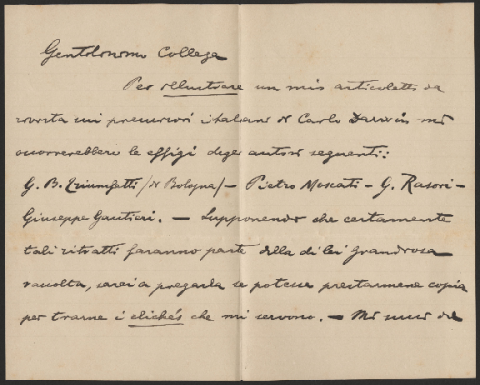 Gentilissimo Collega
Per illustrare un mio articoletto da
rivista sui precursori italiani di Carlo Darwin mi
occorrerebbero le effigi degli autori seguenti:
G. B. Trionfetti (di Bologna) – Pietro Moscati – G. Rasori –
Giuseppe Gautieri. – Supponendo che certamente
tali ritratti faranno parte della di lei grandiosa
raccolta, sarei a pregarla se potesse prestarmene copia
per trarne i clichés che mi servono. – Mi